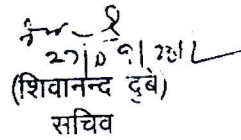 27/09/2012
(शिवानन्द दुबे)
सचिव